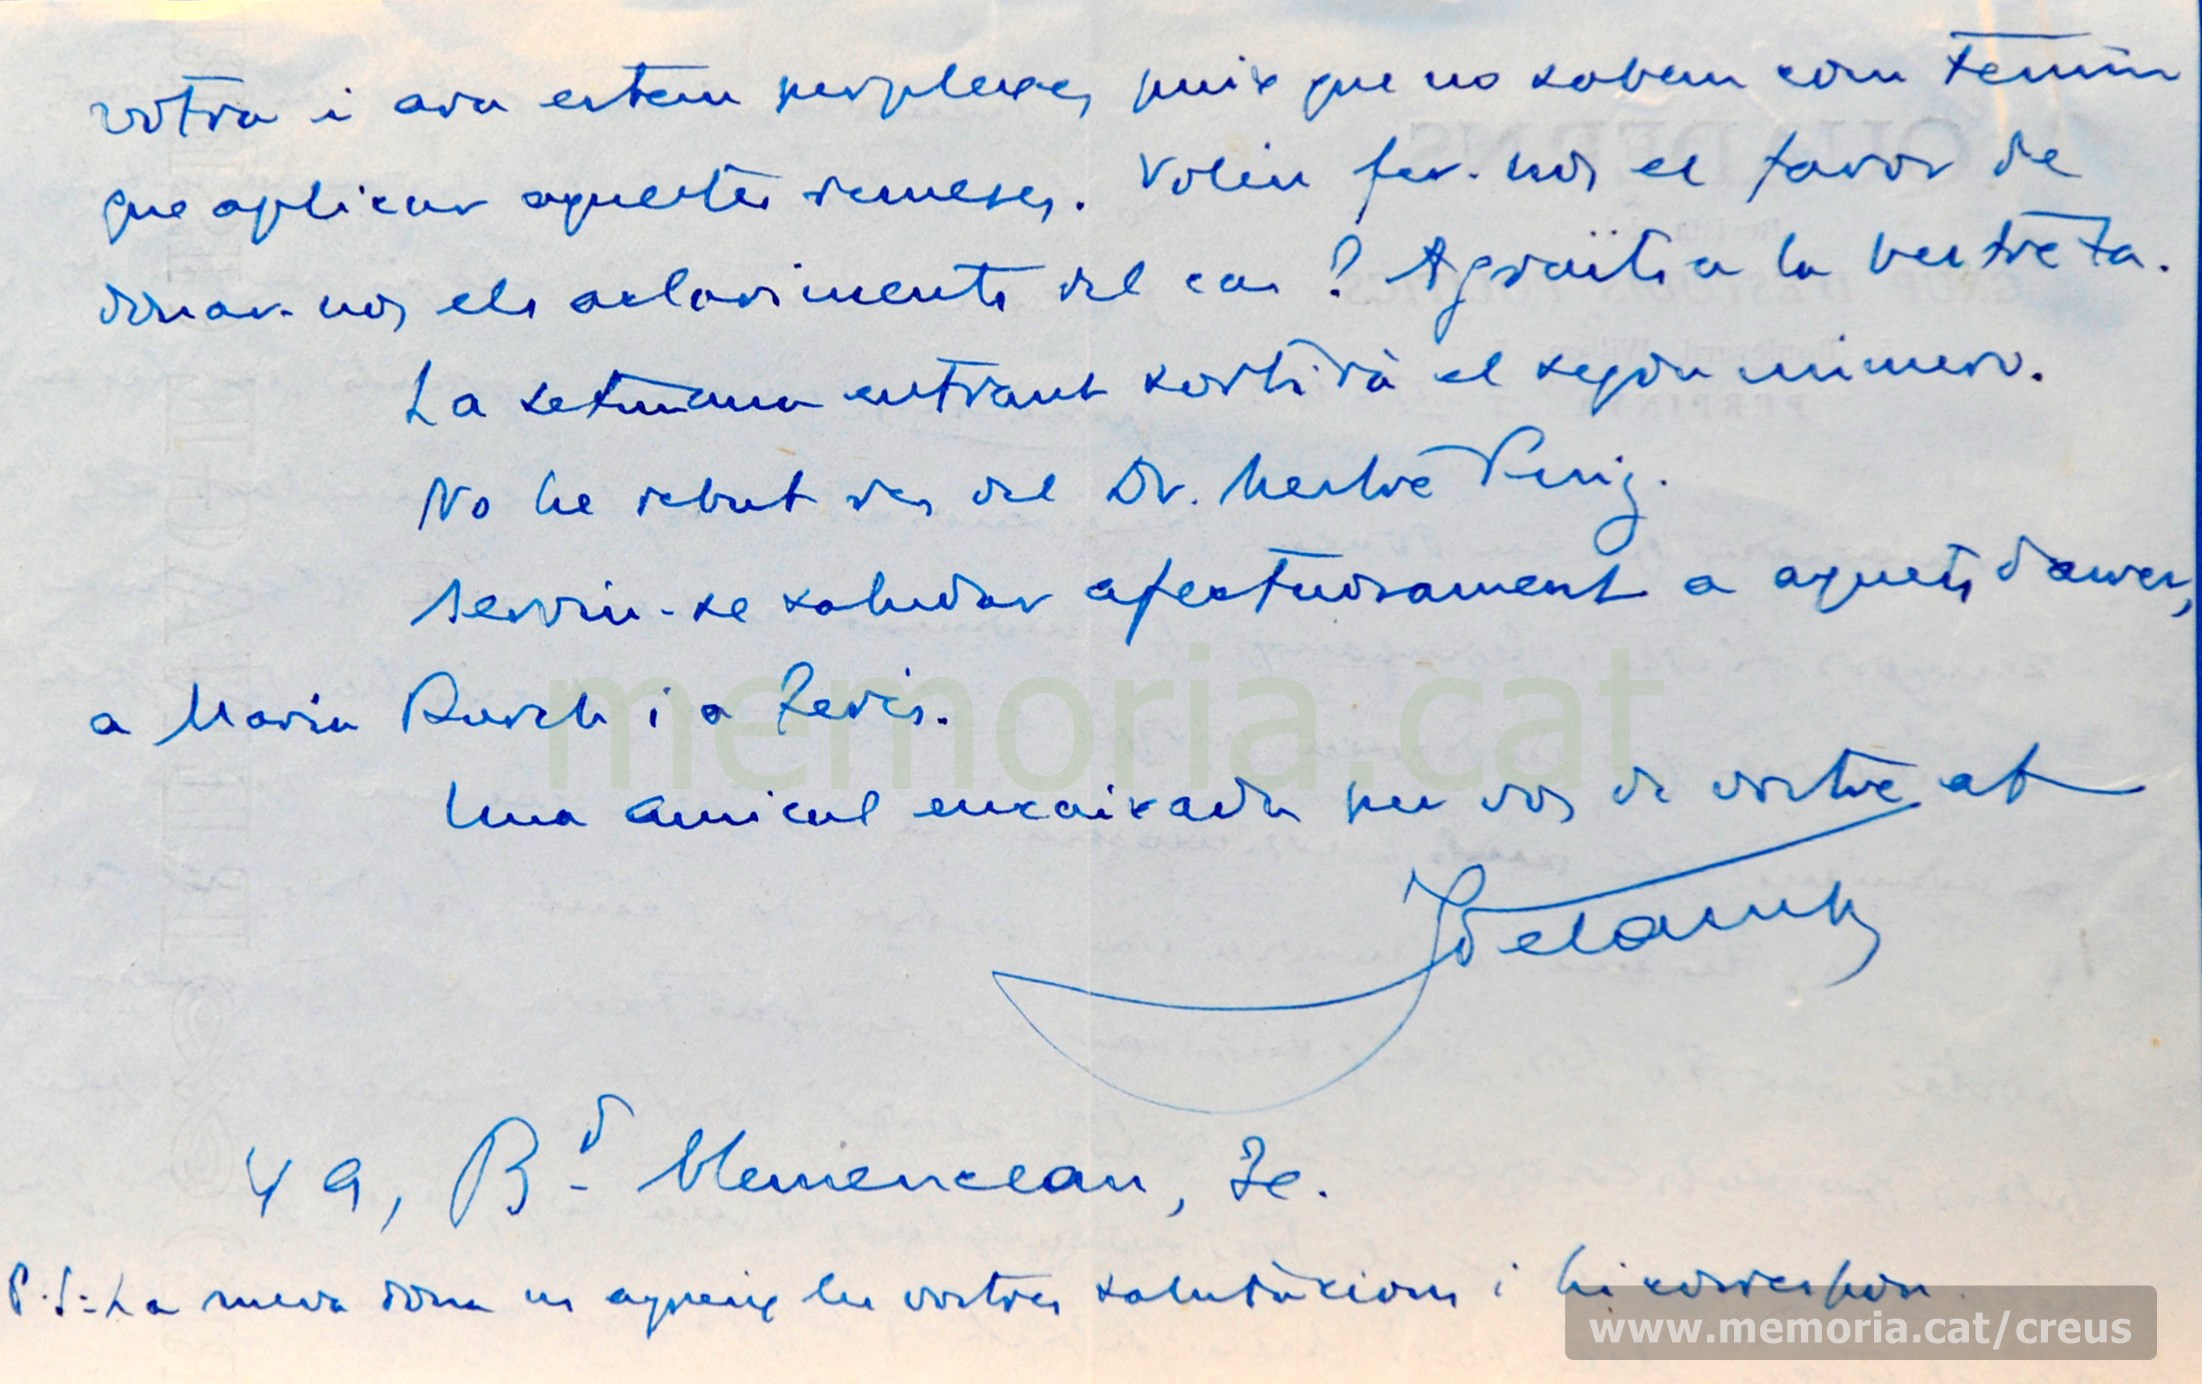 votra i ara estem perplexes, puix que no sabem com tenim
que aplicar aquestes remeses. Voleu fer-nos el favor de
donar-nos els aclariments del cas? Agraïts a la bestreta.
La setmana entrant sortirà el segon número.
No he rebut res del Dr. Mestre Puig.
Serviu-se saludar afectuosament a aquests dames,
a Maria Rosch i a
Una amical encaixada per vos de vostre at
4 a, Bd. Clemenceau, 2e.
P.S.- La meva dona us agraeix les vostres salutacions i hi correspon.
memoria.cat
www.memoria.cat/creus